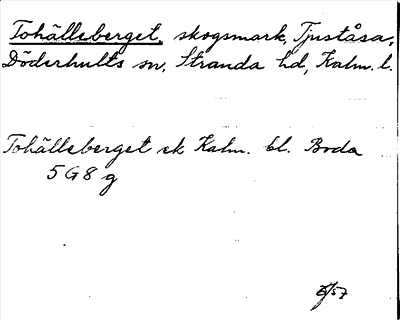 Tohällsberget, skogsmark, Tjuståsa,
Döderhults sn, Stranda hd, Kalm. l.
Tohällsberget ek Kalm. bl. Boda
5 G 8 g
/57